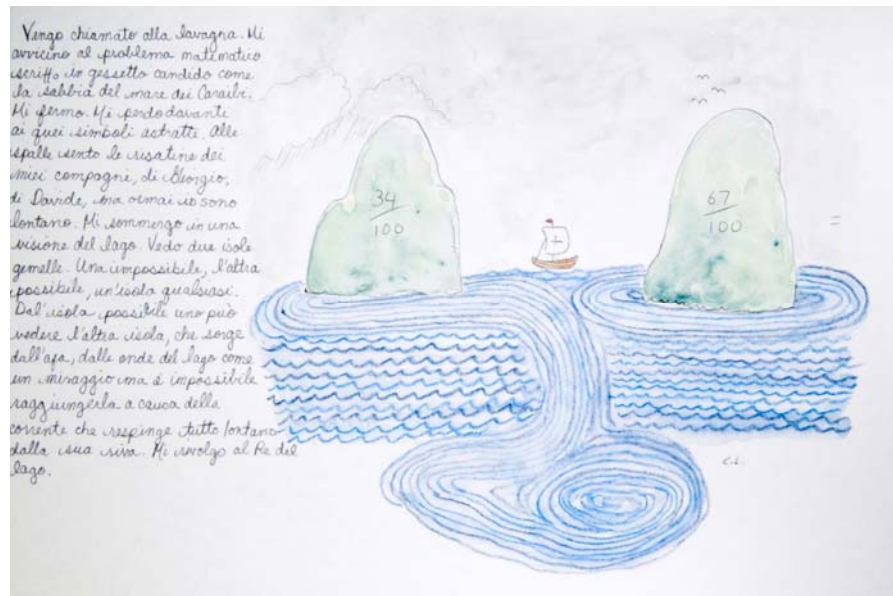 Vengo chiamato alla lavagna. Mi
avvicino al problema matematico
scritto in gessetto candido come
la sabbia del mare dei Caraibi.
Mi fermo. Mi perdo davanti
ai quei simboli astratti. Alle
spalle sento le risatine dei
miei compagni, di Giorgio,
di Davide, ma ormai io sono
lontano. Mi sommergo in una
visione del lago. Vedo due isole
gemelle. Una impossibile, l'altra
possibile, un'isola qualsiasi.
Dal'isola possibile uno può
vedere l'altra isola, che sorge
dall'afa, dalle onde del lago come
un miraggio ma è impossibile
raggiungerla a causa della
corrente che respinge tutto lontano
dalla sua riva. Mi rivolgo al Re del
lago.
34
100
67
100
=
C.L.